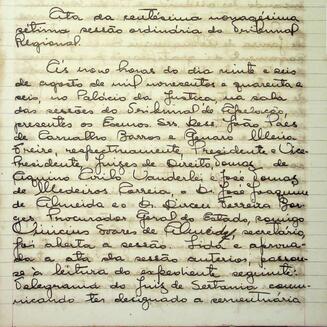 Ata da centésima nonagésima
sétima sessão ordinária do Tribunal
Regional.
Ás nove horas do dia vinte e seis
de agosto de mil novecentos e quarenta e
seis, no Palácio da Justiça, na sala
das sessões do Tribunal de Apelação,
presentes os Exmos. Srs. Des. João Paes
de Carvalho Barros e Genaro
Freire, respectivamente, Presidente e Vice-
Presidente, Juizes de Direito Tomaz de
Aquino Cirilo Vanderlei e José Tomaz
de Medeiros Correia, o Dr. José Joaquim
de Almeida e o Dr. Dirceu Ferreira Bor-
ges, Procurador Geral do Estado, comigo
Vinicius Soares de Almeida, secretário,
foi aberta a sessão. Lida e aprova-
da a ata da sessão anterior, passou-
se à leitura do expediente seguinte:
Telegrama do Juiz de Sertania comu-
nicando ter designado a serventuária